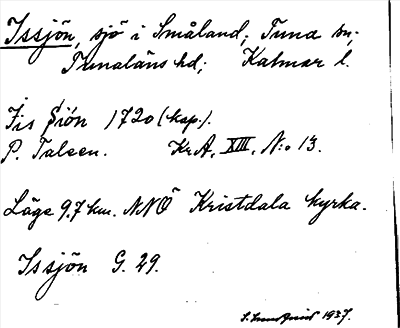 Issjön, sjö i Småland; Tuna sn;
Tunaläns hd; Kalmar l.
Jis Siön 1720 (ksp.).
P. Talsen. Kr.A. XIII. N:o 13.
Läge 9.7 km. NNÖ Kristdala kyrka.
Issjön G. 29.
1937.